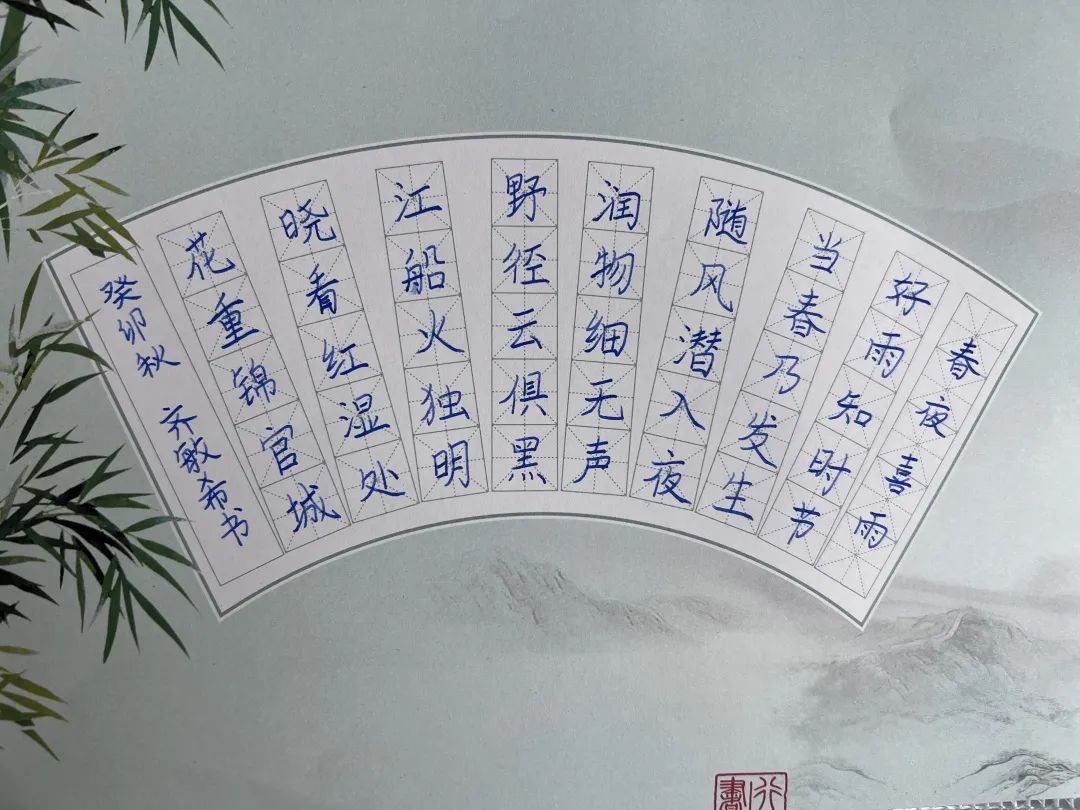 春夜喜雨
好雨知时节
当春乃发生
随风潜入夜
润物细无声
野径云俱黑
江船火独明
晓看红湿处
花重锦官城
癸卯秋 齐敏希书